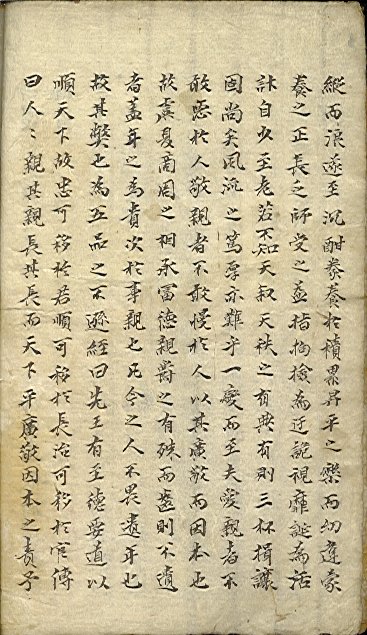 縱而浪遂至沉酣豢養於積累昇平之樂而幼違蒙
養之正長乏師受之益指拘檢為迂詭視靡誕為活
計自少至老若不知天叙天秩之有典有則三杯揖讓
固尚矣風流之篤厚亦難乎一變而至夫愛親者不
敢惡於人敬親者不敢慢於人以其廣敬而因本也
故虞夏商周之相承冨德親爵之有殊而齒則不遺
者盖年之為貴次於事親也凡今之人不畏遺年也
故其弊也為五品之不遜經曰先王有至德要道以
順天下故忠可移於君順可移於長治可移於官傳
曰人〻親其親長其長而天下平廣敬因本之責予